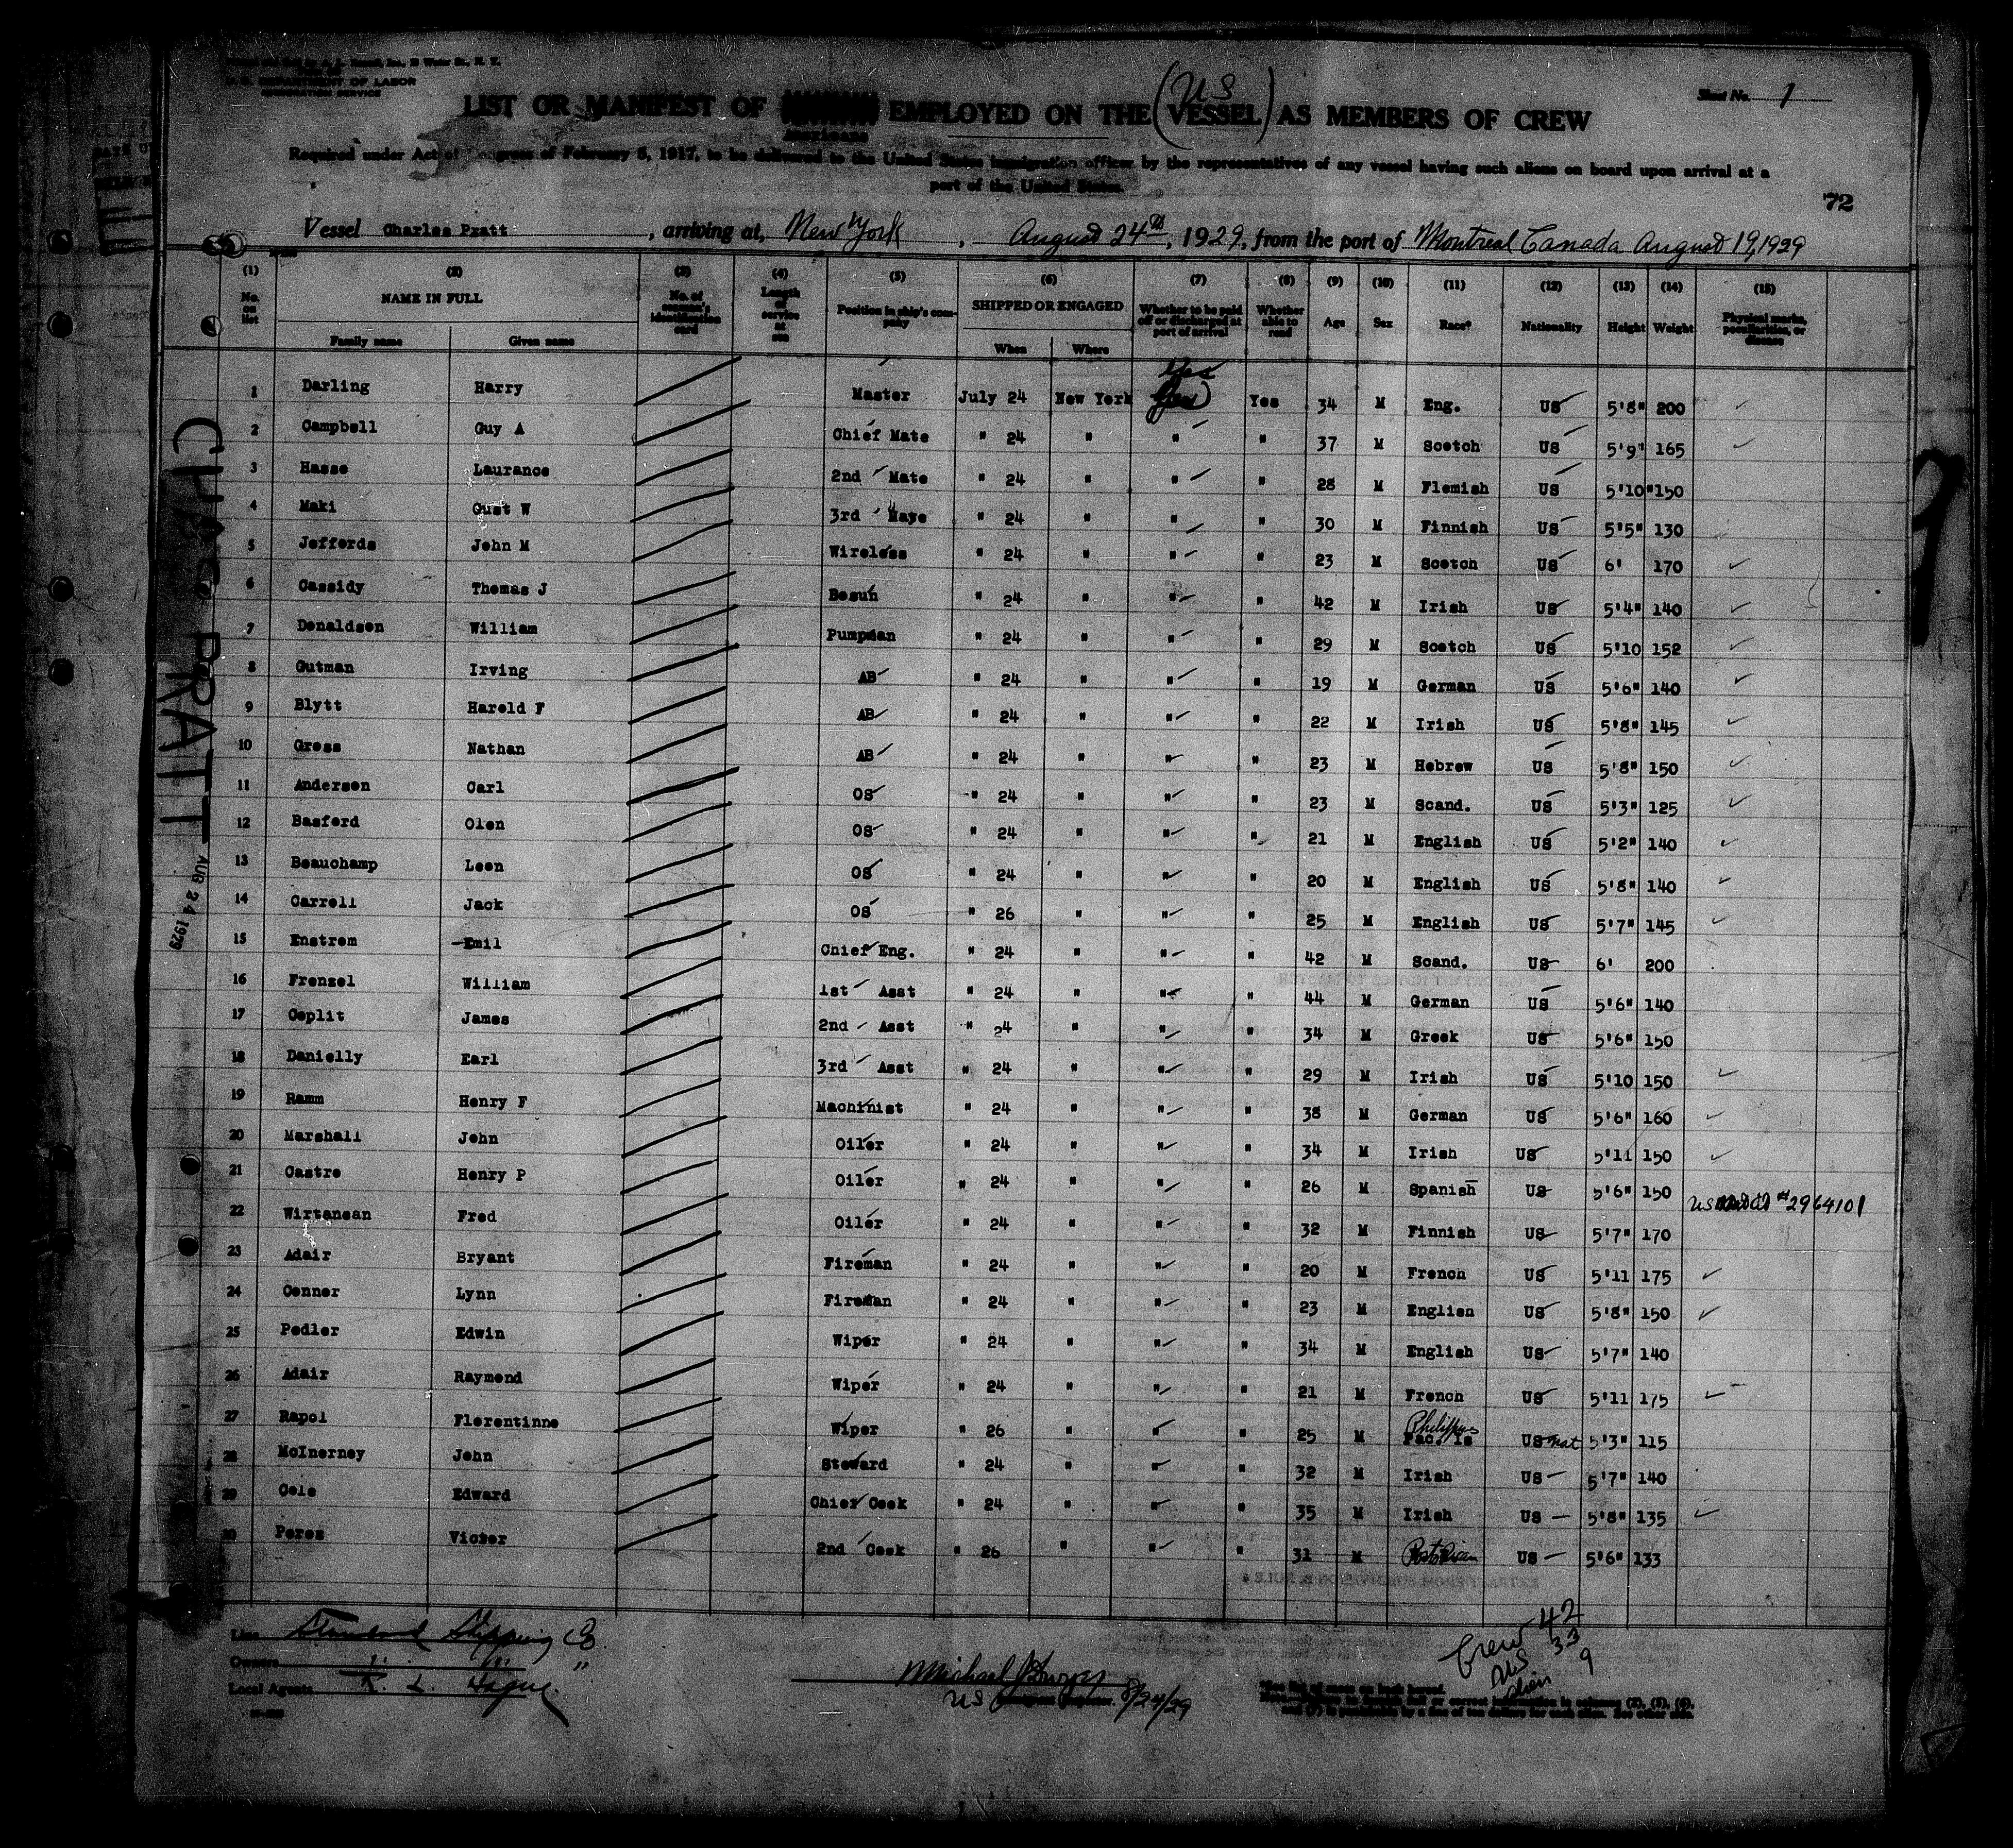 U.S. DEPARTMENT OF LABOR
IMMIGRATION SERVICE
Sheet No. 1
LIST OR MANIFEST OF EMPLOYED ON THE (US VESSEL) AS MEMBERS OF CREW
Americans
Required under Act of Congress of February 5, 1917, to be delivered to the United States immigration officer by the representatives of any vessel having such aliens on board upon arrival at a
port of the United States.
72
Vessel Charles Pratt, arriving at, New York, August 24th, 1929, from the port of Montreal Canada August 19, 1929
(1) (2) (3) (4) (5) (6) (7) (8) (9) (10) (11) (12) (13) (14) (15)
No. on list NAME IN FULL Family name Given name No. of seaman's identification card Length of service at sea Position in ship's company SHIPPED OR ENGAGED When Where Whether to be paid off or discharged at port of arrival Whether able to read Age Sex Race* Nationality Height Weight Physical marks, peculiarities, or disease
Yes
1 Darling Harry Master July 24 New York Yes Yes 34 M Eng. US 5'8" 200
2 Campbell Guy A Chief Mate " 24 " " " 37 M Scotch US 5'9" 165
3 Hasse Laurance 2nd Mate " 24 " " " 28 M Flemish US 5'10" 150
4 Maki Gust W 3rd Maye " 24 " " " 30 M Finnish US 5'5" 130
5 Jeffords John M Wireless " 24 " " " 23 M Scotch US 6' 170
6 Cassidy Thomas J Bosun " 24 " " " 42 M Irish US 5'4" 140
7 Donaldson William Pumpman " 24 " " " 29 M Scotch US 5'10 152
8 Gutman Irving AB " 24 " " " 19 M German US 5'6" 140
9 Blytt Harold F AB " 24 " " " 22 M Irish US 5'8" 145
10 Gross Nathan AB " 24 " " " 23 M Hebrew US 5'8" 150
11 Anderson Carl OS " 24 " " " 23 M Scand. US 5'3" 125
12 Basford Olen OS " 24 " " " 21 M English US 5'2" 140
13 Beauchamp Leon OS " 24 " " " 20 M English US 5'8" 140
14 Carroll Jack OS " 26 " " " 25 M English US 5'7" 145
15 Enstrom Emil Chief Eng. " 24 " " " 42 M Scand. US 6' 200
16 Frenzel William 1st Asst " 24 " " " 44 M German US 5'6" 140
17 Coplit James 2nd Asst " 24 " " " 34 M Greek US 5'6" 150
18 Danielly Earl 3rd Asst " 24 " " " 29 M Irish US 5'10 150
19 Ramm Henry F Machinist " 24 " " " 38 M German US 5'6" 160
20 Marshall John Oiler " 24 " " " 34 M Irish US 5'11 150
21 Castro Henry P Oiler " 24 " " " 26 M Spanish US 5'6" 150 US #2964101
22 Wirtanean Fred Oiler " 24 " " " 32 M Finnish US 5'7" 170
23 Adair Bryant Fireman " 24 " " " 20 M French US 5'11 175
24 Conner Lynn Fireman " 24 " " " 23 M English US 5'8" 150
25 Pedler Edwin Wiper " 24 " " " 34 M English US 5'7" 140
26 Adair Raymond Wiper " 24 " " " 21 M French US 5'11 175
27 Rapol Florentinne Wiper " 26 " " " 25 M Pac. Is US nat 5'3" 115
28 McInerney John Steward " 24 " " " 32 M Irish US 5'7" 140
29 Cole Edward Chief Cook " 24 " " " 35 M Irish US 5'8" 135
30 Peres Victor 2nd Cook " 26 " " " 31 M Porto Rican US 5'6" 133
CHAS PRATT
AUG 24 1929
Line Standard Shipping Co.
Owners " " "
Local Agents R. L. Hague
Michael
US 8/24/29
Crew 42
US 33
Alien 9